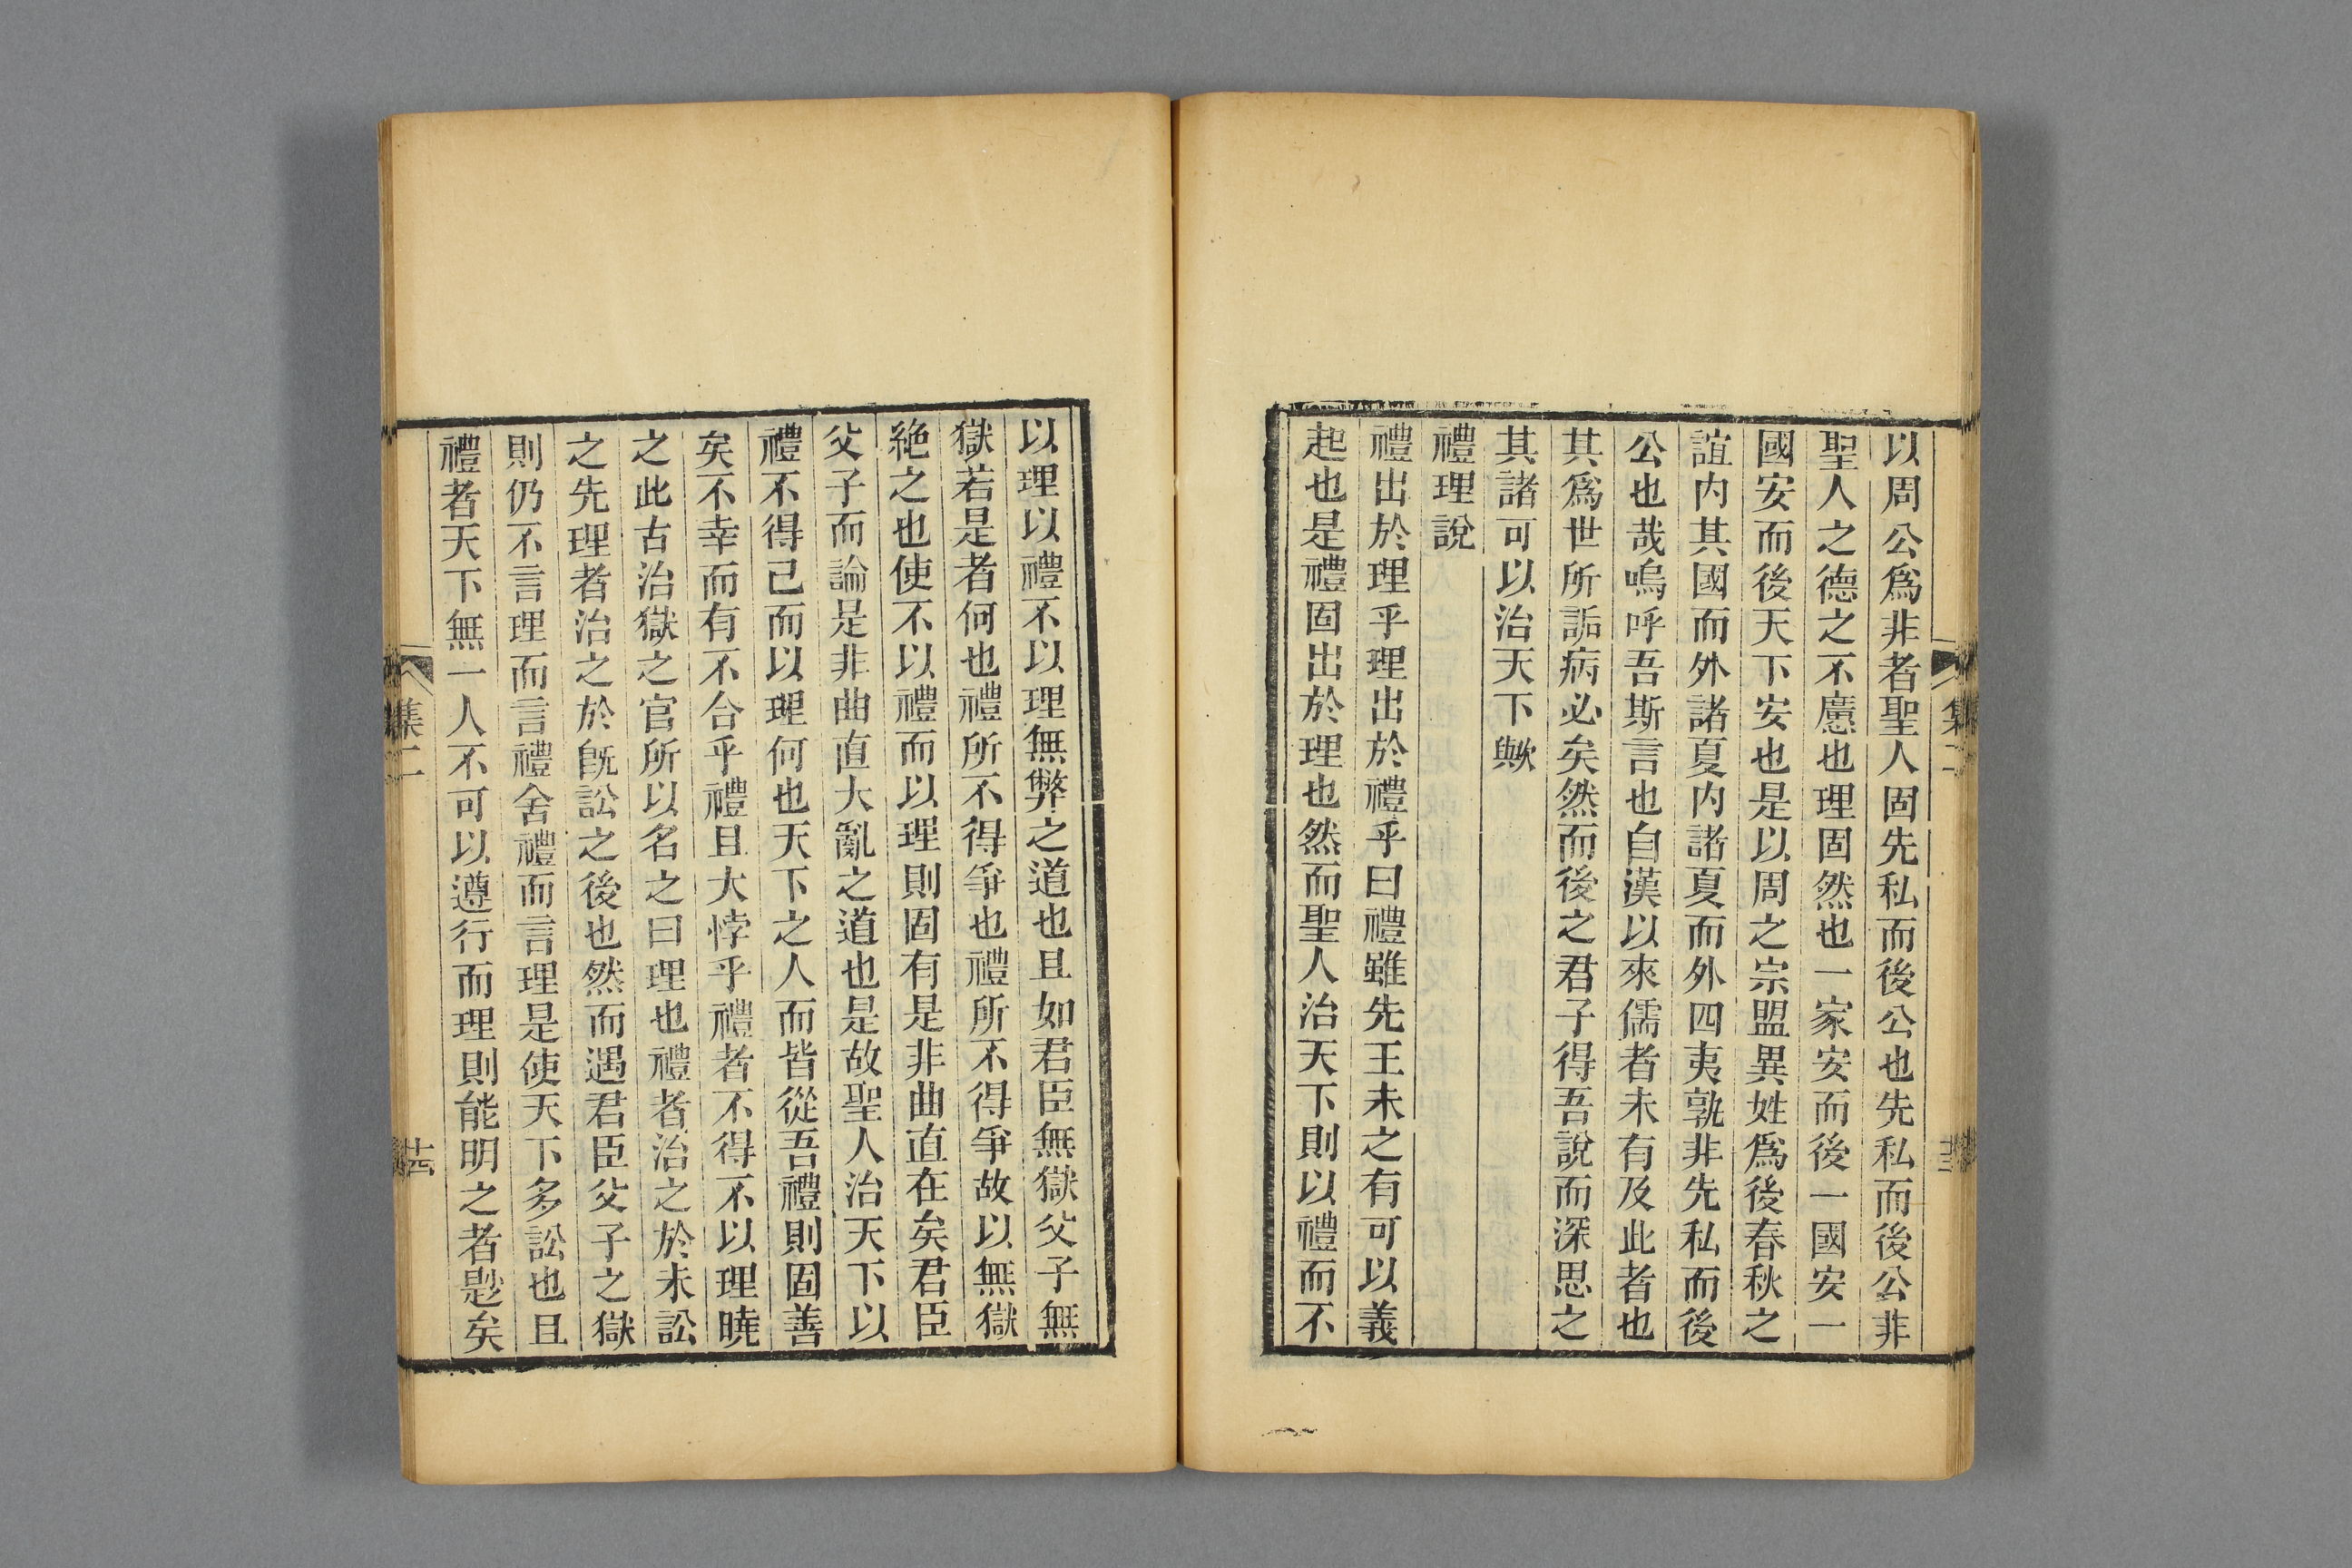 以周公爲非者聖人固先私而後公也先私而後公非
聖人之德之不慮也理固然也一家安而後一國安一
國安而後天下安也是以周之宗盟異姓爲後春秋之
誼内其國而外諸夏内諸夏而外四夷孰非先私而後
公也哉嗚呼吾斯言也自漢以來儒者未有及此者也
其爲世所詬病必矣然而後之君子得吾說而深思之
其諸可以治天下歟
禮理說
禮出於理乎理出於禮乎曰禮雖先王未之有可以義
起也是禮固出於理也然而聖人治天下則以禮而不
以理以禮不以理無弊之道也且如君臣無獄父子無
獄若是者何也禮所不得爭也禮所不得爭故以無獄
絶之也使不以禮而以理則固有是非曲直在矣君臣
父子而論是非曲直大亂之道也是故聖人治天下以
禮不得已而以理何也天下之人而皆從吾禮則固善
矣不幸而有不合乎禮且大悖乎禮者不得不以理曉
之此古治獄之官所以名之曰理也禮者治之於未訟
之先理者治之於旣訟之後也然而遇君臣父子之獄
則仍不言理而言禮舍禮而言理是使天下多訟也且
禮者天下無一人不可以遵行而理則能明之者尟矣
集二